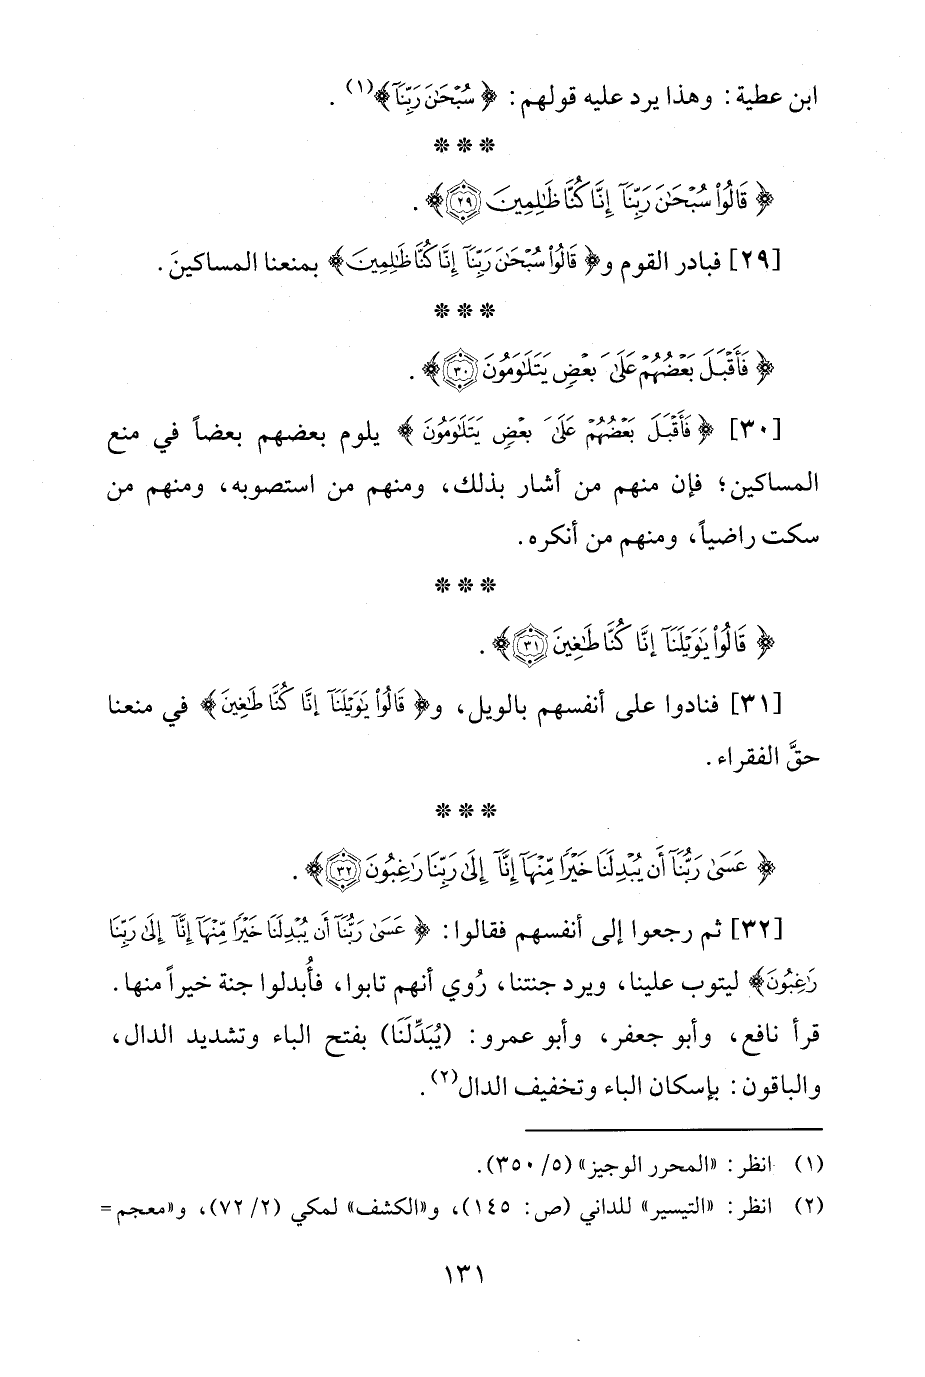 ابن عطية: وهذا يرد عليه قولهم: ﴿سُبْحَٰنَ رَبِّنَآ﴾(١).
***
﴿قَالُوا۟ سُبْحَٰنَ رَبِّنَآ إِنَّا كُنَّا ظَٰلِمِينَ ٢٩﴾.
[٢٩] فبادر القوم و﴿قَالُوا۟ سُبْحَٰنَ رَبِّنَآ إِنَّا كُنَّا ظَٰلِمِينَ﴾ بمنعنا المساكينَ.
***
﴿فَأَقْبَلَ بَعْضُهُمْ عَلَىٰ بَعْضٍ يَتَلَٰوَمُونَ ٣٠﴾.
[٣٠] ﴿فَأَقْبَلَ بَعْضُهُمْ عَلَىٰ بَعْضٍ يَتَلَٰوَمُونَ﴾ يلوم بعضهم بعضاً في منع
المساكين؛ فإن منهم من أشار بذلك، ومنهم من استصوبه، ومنهم من
سكت راضياً، ومنهم من أنكره.
***
﴿قَالُوا۟ يَٰوَيْلَنَآ إِنَّا كُنَّا طَٰغِينَ ٣١﴾.
[٣١] فنادوا على أنفسهم بالويل، و﴿قَالُوا۟ يَٰوَيْلَنَآ إِنَّا كُنَّا طَٰغِينَ﴾ في منعنا
حقَّ الفقراء.
***
﴿عَسَىٰ رَبُّنَآ أَن يُبْدِلَنَا خَيْرًا مِّنْهَآ إِنَّآ إِلَىٰ رَبِّنَا رَٰغِبُونَ ٣٢﴾.
[٣٢] ثم رجعوا إلى أنفسهم فقالوا: ﴿عَسَىٰ رَبُّنَآ أَن يُبْدِلَنَا خَيْرًا مِّنْهَآ إِنَّآ إِلَىٰ رَبِّنَا
رَٰغِبُونَ﴾ ليتوب علينا، ويرد جنتنا، رُوي أنهم تابوا، فأُبدلوا جنة خيراً منها.
قرأ نافع، وأبو جعفر، وأبو عمرو: (يُبَدِّلَنَا) بفتح الباء وتشديد الدال،
والباقون: بإسكان الباء وتخفيف الدال(٢).
(١) انظر: «المحرر الوجيز» (٥/ ٣٥٠).
(٢) انظر: «التيسير» للداني (ص: ١٤٥)، و«الكشف» لمكي (٢/ ٧٢)، و«معجم =
١٣١